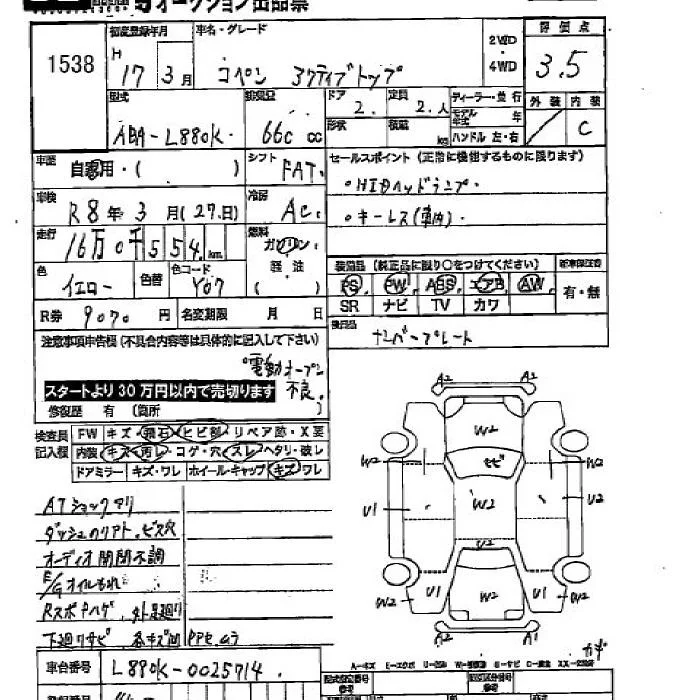 オークション出品票
1538
初度登録年月 H 17 3月
車名・グレード コペン アクティブトップ
2WD
4WD
評価点 3.5
外装 内装 C
型式 ABA-L880K
排気量 660 cc
ドア 2.
定員 2.人
形状 積載 kg
ディーラー・並行
モデル年式 年
ハンドル 左・右
車歴 自家用・( )
シフト FAT.
セールスポイント (正常に機能するものに限ります)
。HIDヘッドランプ.
。キーレス(車内)
車検 R8年3月(27.日)
冷房 AC.
走行 16万0千554km
燃料 ガソリン・
軽油
( )
色 イエロー
色替
色コード Y07
装備品 (純正品に限り○をつけてください)
PS. PW. ABS. エアB AW.
SR ナビ TV カワ
新車保証書 有・無
R券 9070 円
名変期限 月 日
後日品
ナンバープレート
注意事項申告欄 (不具合内容等は具体的に記入して下さい)
。電動オープン
不良.
スタートより30万円以内で売切ります
修復歴 有 (箇所 )
検査員
記入欄
FW キズ・飛石・ヒビ割・リペア跡・X要
内装・キズ・汚レ・コゲ・穴・スレ・ヘタリ・破レ
ドアミラー・キズ・ワレ・ホイールキャップ・キズ・ワレ
ATショックアリ
ダッシュのリアト、ビス穴
オーディオ開閉不調
E/Gオイルもれ
RスポPハゲ.
下廻りサビ
A2 A2
W2
W2 サビ W2
U1 W2 U2
U2
W2 U1 W2 U1 W2
A2 A1
カギ
A-キズ E-エクボ U-凹み W-補修跡 S-サビ C-腐食 XX-交換済
車台番号 L880K-0025714.
型式指定番号
参考
類別区分番号
参考